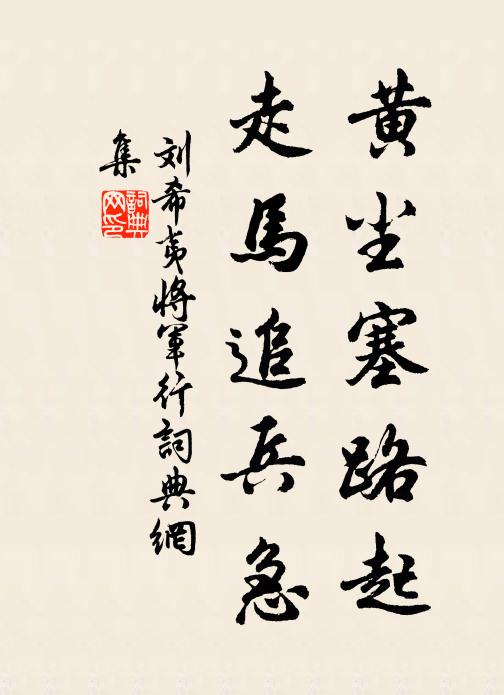 黄尘塞路起
走馬追兵急
刘希夷將軍行詞典網
集
詞典网印